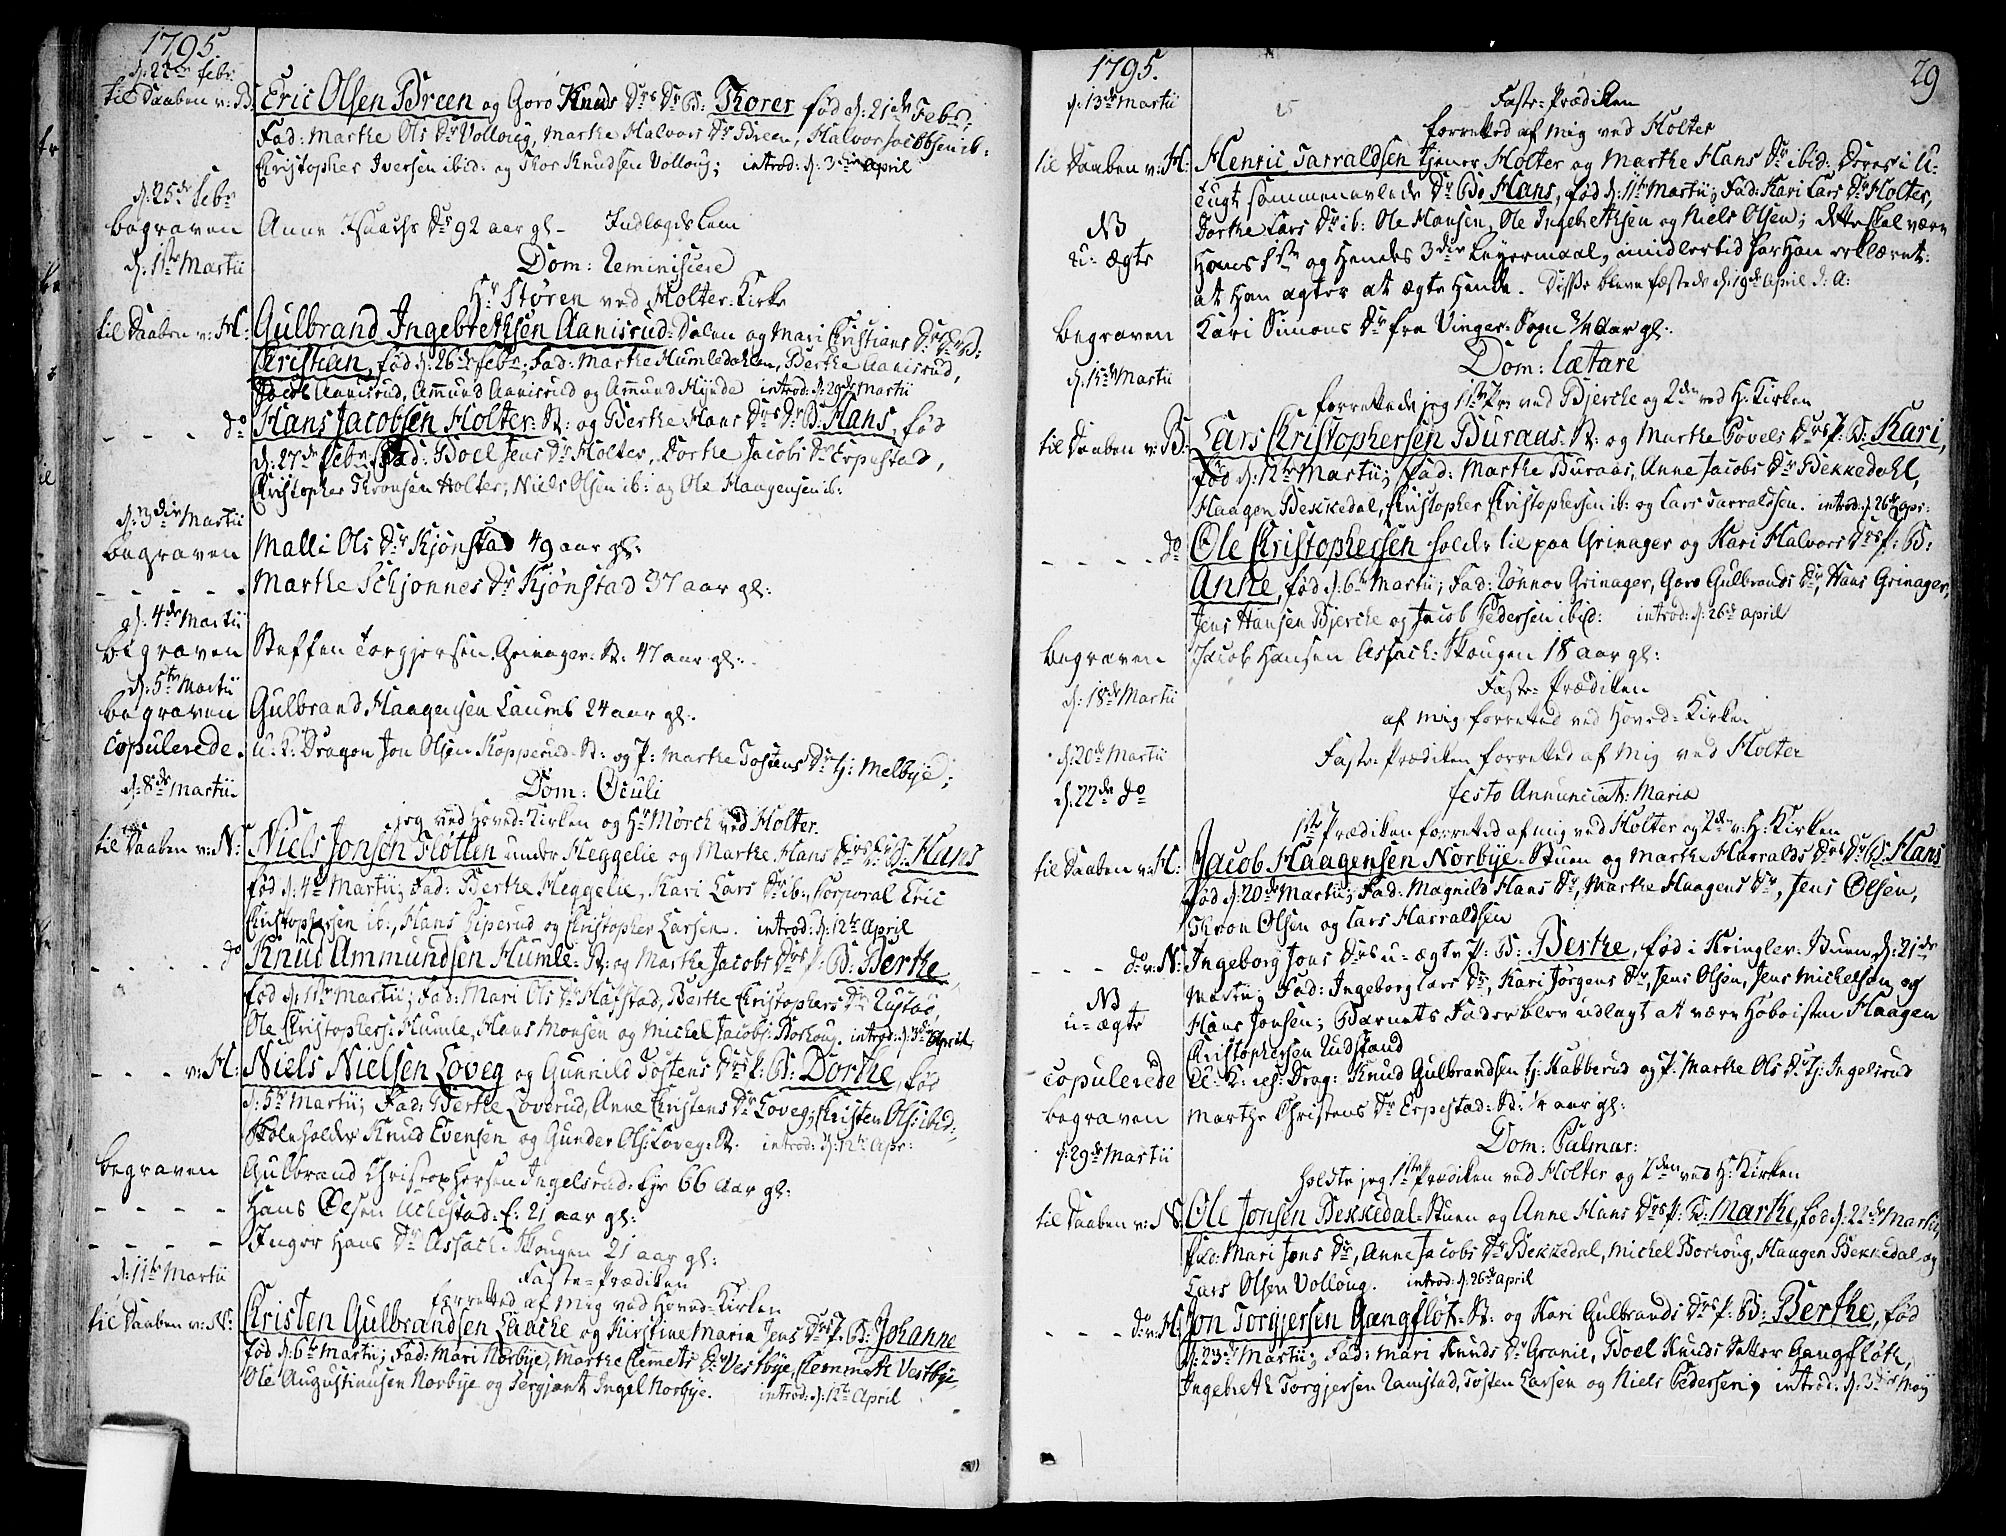 1795.
d: 22de febr:
til Daaben v: B: Eric Olsen Breen og Goro Knuds Drs Dr B: Thorer fød d: 21de Febr:
Fad: Marthe Ols Dr Volloug, Marthe Halvors Dr Breen, Halvor Jacobsen ib:
Christopher Iversen ibid: og Thor Knudsen Volloug; introd: d: 3die April
d: 25de febr
begraven Anne Isaachs Dr 92 aar gl. Indlagds Lem
d: 1ste Martii Dom: Reminiscere
Hr Støren ved Holter-Kirke
til Daaben v: H: Gulbrand Ingebrethsen Aanisrud-Dalen og Mari Christians Drs Dr B:
Christian, fød d: 26de febr; Fad: Marthe Humledahlen, Berthe Aanisrud,
Jacob Aanisrud, Amund Aanisrud og Amund Hynde introd: d: 29de Martii
do Hans Jacobsen Holter: St: og Berthe Hans Drs Dr B: Hans, fød
d: 27de febr Fad: Boel Jens Dr Holter, Dorthe Jacobs Dr Erpestad,
Christopher Thronsen Holter, Niels Olsen ib: og Ole Haagensen ib:
d: 3die Martii
begraven Malli Ols Dr Kjønstad 49 aar gl:
Marthe Schjønnes Dr Kjønstad 37 aar gl:
d: 4de Martii
begraven Steffen Torgjersen Grinager: St: 47 aar gl:
d: 5te Martii
begraven Gulbrand Haagensen Laumb 24 aar gl:
copulerede. U: K: Dragon Jon Olsen Kopperud: St: og P: Marthe Tostens Dr tj: Melbye;
d: 8de Martii Dom: Oculi
jeg ved Hoved-Kirken og Hr Mørch ved Holter.
til Daaben v: N: Niels Jonsen Fløtten under Heggelie og Marthe Hans Drs Dr B: Hans
fød d: 4de Martii; Fad: Berthe Heggelie, Kari Lars Dr ib:, Corporal Eric
Christophersen ib:, Hans Giperud og Christopher Larsen. introd: d: 12te April
do Knud Ammundsen Humle: St: og Marthe Jacobs Drs P: B: Berthe,
fød d: 1ste Martii; Fad: Mari Ols Dr Hafstad, Berthe Christophers Dr Rustad,
Ole Christophers: Humle, Hans Monsen og Michel Jacobs: Borchoug. introd: d: 3die April
v: H: Niels Nielsen Loveg og Gunnild Tostens Drs P: B: Dorthe, fød
d: 5te Martii; Fad: Berthe Loverud, Anne Christens Dr Loveg, Christen Ols: ibid:,
Skoleholder Knud Evensen og Gunder Ols: Loveg: St. introd: d: 12te Apr:
begraven Gulbrand Christophersen Ingelsrud: Eje 66 aar gl:
Hans Olsen Ullestad: E: 21 aar gl:
Inger Hans Dr Assach: Skougen 21 aar gl:
d: 11te Martii Faste-Prædiken
forretted af mig ved Hoved-Kirken
til Daaben v: N: Christen Gulbrandsen Laache og Kirstine Maria Jens Drs P: B: Johanne
fød d: 6te Martii; Fad: Mari Norbye, Marthe Clemets Dr Vestbye, Clemmeth Vestbye,
Ole Augustinusen Norbye og Sergjant Ingel Norbye. introd: d: 12te April
1795.
29
d: 13de Martii Faste-Prædiken
forretted af mig ved Holter
til Daaben v: H: Henric Tarraldsen tjener Holter og Marthe Hans Dr ibid: Deres i U-
tugt sammenavlede Dr B: Hans, fød d: 11te Martii; Fad: Kari Lars Dr Holter,
NB Dorthe Lars Dr ib: Ole Hansen, Ole Ingebrethsen og Niels Olsen; dette skal være
u-ægte Hans 1ste og Hendes 3die Leyermaal, imidlertid har Han erklæret:
at Han agter at ægte Hende. Disse bleve fæstede d: 19de April d: A:
begraven Kari Simons Dr fra Vinger-Sogn 3/4 aar gl:
Dom: Lætare
d: 15de Martii forrettede jeg 1ste Pr: ved Bjerche og 2den ved H: Kirken
til Daaben v: B: Lars Christophersen Buraas: St: og Marthe Povels Drs P: B: Kari,
fød d: 12te Martii; Fad: Marthe Buraas, Anne Jacobs Dr Bekkedahl,
Haagen Bekkedal, Christopher Christophersen ib: og Lars Tarraldsen. introd: d: 26de Apr:
do Ole Christophersen holder til paa Grinager og Kari Halvors Drs P: B:
Anne, fød d: 6te Martii; Fad: Rønnov Grinager, Goro Gulbrands Dr, Hans Grinager,
Jens Hansen Bjerche og Jacob Pedersen ibid: introd: d: 26de April
begraven Jacob Hansen Assach: Skougen 18 aar gl:
d: 18de Martii Faste-Prædiken
af mig forretted ved Hoved-Kirken
d: 20de Martii Faste-Prædiken forretted af mig ved Holter
d: 22de do Festo Annunciat: Mariæ
1ste Prædiken forretted af mig ved Holter og 2den v: H: Kirken
til Daaben v: H: Jacob Haagensen Norbye: Stuen og Marthe Harralds Drs Dr B: Hans
fød d: 20de Martii; Fad: Magnild Hans Dr, Marthe Haagens Dr, Jens Olsen,
Thron Olsen og Lars Harraldsen
do v: N: Ingeborg Jons Drs u-ægte P: B: Berthe, fød i Kringler: Stuen d: 21de
NB Martii; Fad: Ingeborg Lars Dr, Kari Jørgens Dr, Jens Olsen, Jens Michelsen og
u-ægte Hans Jonsen; Barnets Fader blev udlagt at være Hoboisten Haagen
Christophersen Rudstand
copulerede U: K: Drag: Knud Gulbrandsen tj: Habberud og P: Marthe Ols Dr tj: Ingelsrud
begraven Marthe Christens Dr Erpestad: St: 1/2 aar gl:
Dom: Palmar:
d: 29de Martii holdte jeg 1ste Prædiken ved Holter og 2den ved H: Kirken
til Daaben v: N: Ole Jonsen Bekkedal: Stuen og Anne Hans Drs P: B: Marthe, fød d: 22de Martii,
Fad: Mari Jens Dr, Anne Jacobs Dr Bekkedal, Michel Borchoug, Haagen Bekkedal og
Lars Olsen Volloug. introd: d: 26de April
do v: H: Jon Torgjersen Gangfløt: St: og Kari Gulbrands Drs P: B: Berthe, fød
d: 23de Martii; Fad: Mari Knuds Dr Granie, Boel Knuds Datter Gangfløth,
Ingebreth Torgjersen Ramstad, Tosten Larsen og Niels Pedersen; introd: d: 3die May